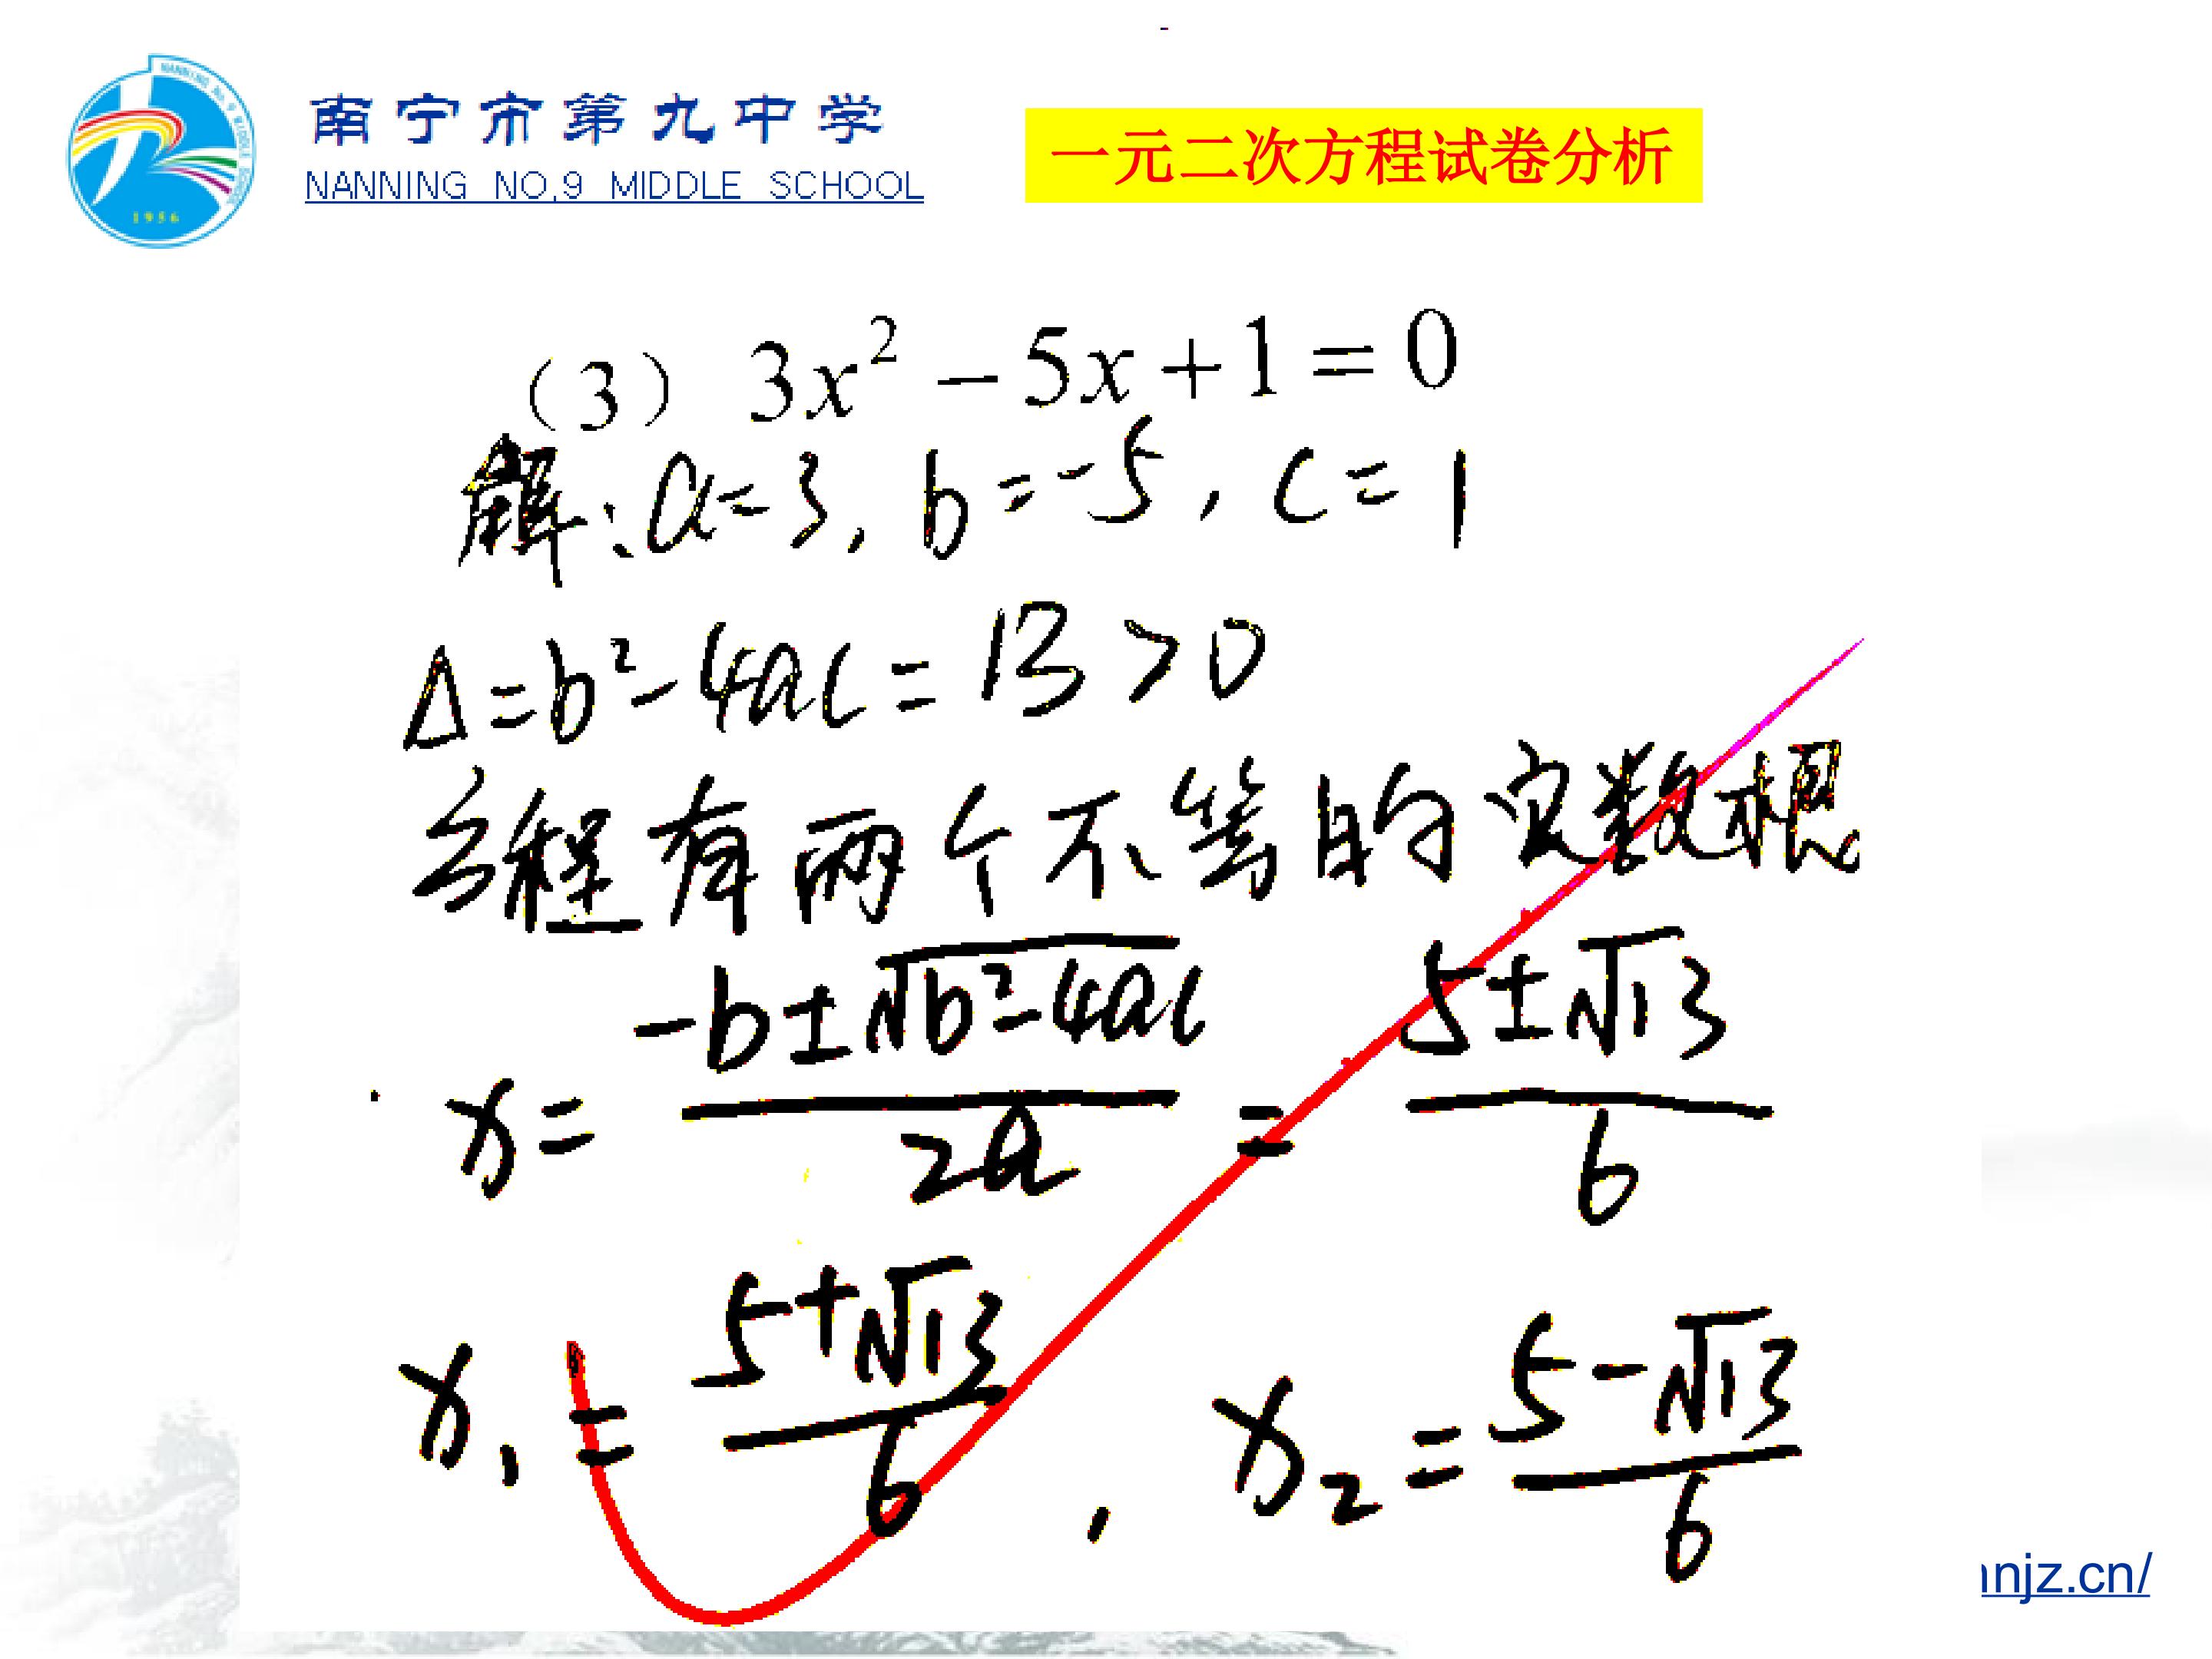 南宁市第九中学
NANNING NO,9 MIDDLE SCHOOL
1956
一元二次方程试卷分析
（3） 3x² − 5x + 1 = 0
解：a=3, b=-5, c=1
Δ=b²-4ac=13>0
方程有两个不等的实数根
x= (-b±√(b²-4ac))/(2a) = (5±√13)/6
x₁= (5+√13)/6 , x₂= (5-√13)/6
njz.cn/